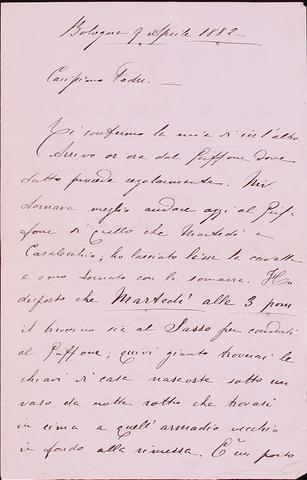 Bologna 9 Aprile 1882
Carissimo Padre. —
Ti confermo la mia di ier l'altro.
Arrivo or ora dal Griffone dove
tutto procede regolarmente. Mi
tornava meglio andare oggi al Grif-
fone di quello che Martedì a
Casalecchio, ho lasciato la cavalla
e sono tornato con la somara. Ho
disposto che Martedì alle 3 pom
il birroccino sia al Sasso per condurti
al Griffone, quivi giunto troverai le
chiavi di casa nascoste sotto un
vaso da notte rotto che trovasi
in cima a quell'armadio vecchio
in fondo alla rimessa. È un posto